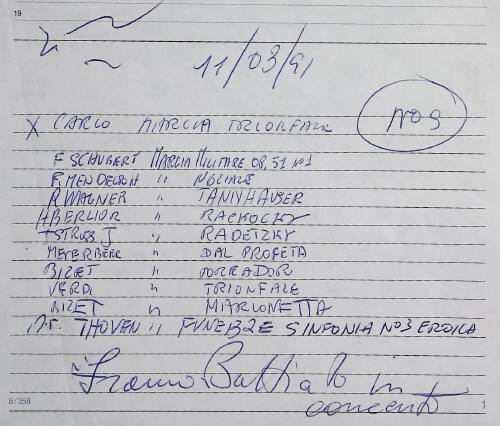 19
11/03/91
X CARLO MARCIA TRIONFALE
NO 9
F SCHUBERT MARCIA MILITARE OP, 51 N°1
F. MENDELSOH " NUZIALE
R WAGNER " TANNHAUSER
H BERLIOR " RACKOCKY
STRUSS J " RADETZKY
MEYERBEER " DAL PROFETA
BIZET " TOREADOR
VERDI " TRIONFALE
BIZET " MARIONETTA
THOVEN " FUNEBRE SINFONIA N°3 EROICA
Franco Battiato in
concerto
8/358
1